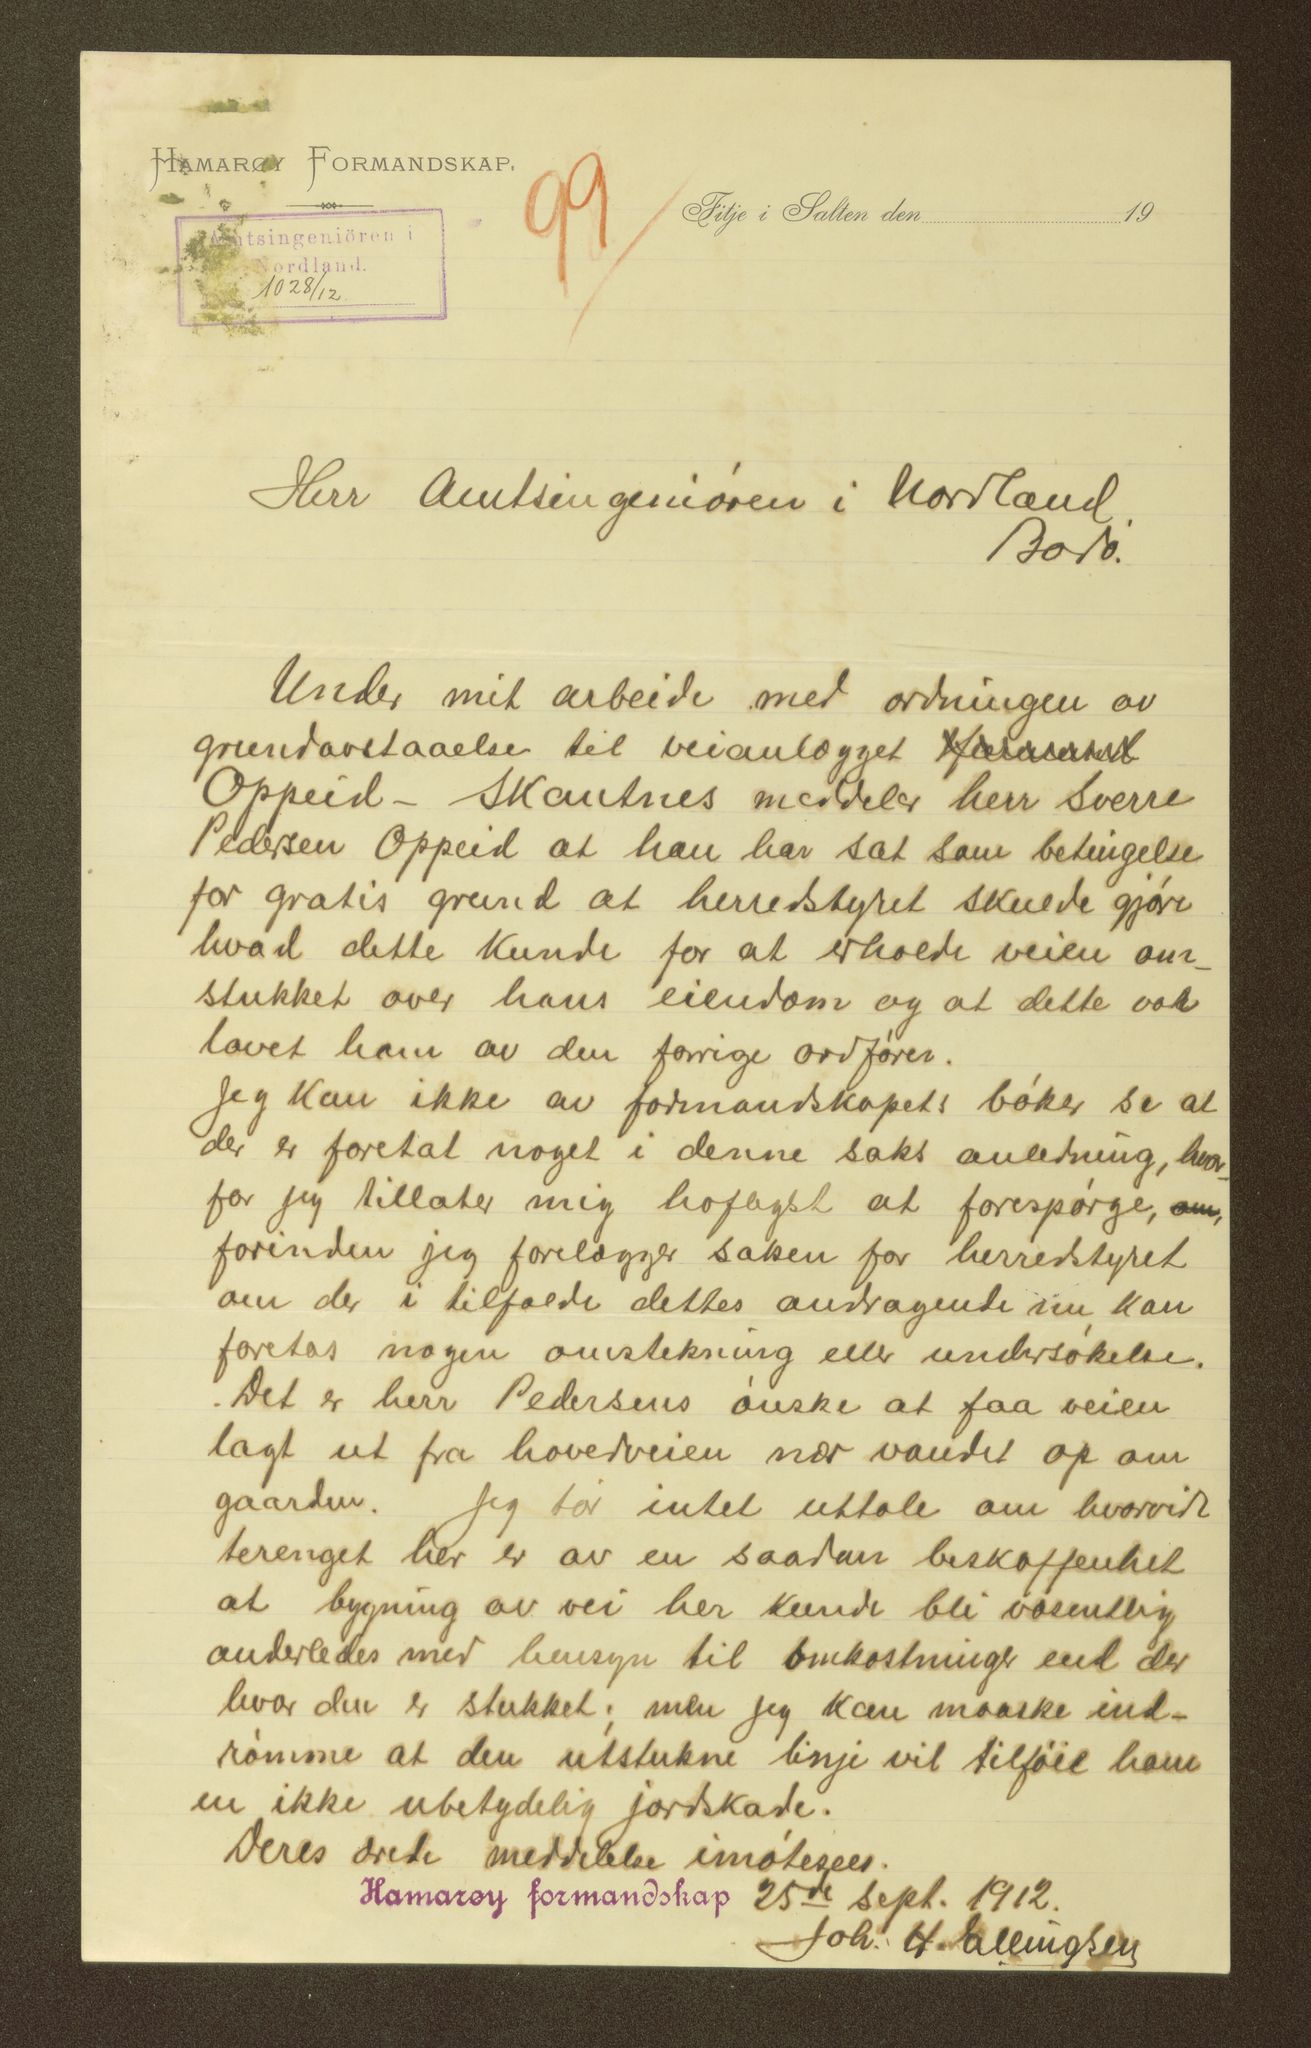 HAMARØY FORMANDSKAP.
99
Fitje i Salten den 19
Amtsingeniören i
Nordland.
1028/12
Herr Amtsingeniören i Nordland
Bodö.
Under mit arbeide med ordningen av
grundavstaaelse til veianlægget
Oppeid - Skautnes meddeler herr Sverre
Pedersen Oppeid at han har sat som betingelse
for gratis grund at herredstyret skulde gjöre
hvad dette kunde for at erholde veien om-
stukket over hans eiendom og at dette var
lovet ham av den forrige ordförer.
Jeg kan ikke av formandskapets böker se at
der er foretat noget i denne saks anledning, hvor-
for jeg tillater mig höflgst at forespörge, om,
forinden jeg forelægger saken for herredstyret
om der i tilfælde dettes andragende nu kan
foretas nogen omstekning eller undersökelse.
Det er herr Pedersens önske at faa veien
lagt ut fra hovedveien nær vandet op om
gaarden. Jeg tör intet uttale om hvorvidt
terænget her er av en saadan beskaffenhet
at bygning av vei her kunde bli væsentlig
anderledes med hensyn til omkostninger end der
hvor den er stukket; men jeg kan maaske ind-
römme at den utstukne linje vil tilföie ham
en ikke ubetydelig jordskade.
Deres ærede meddelelse imötesees.
Hamarøy formandskap 25de sept. 1912.
Joh. H. Ellingsen